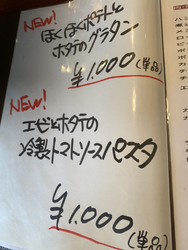 NEW!
ほくほくポテトと
ホタテのグラタン
¥1,000(単品)
NEW!
エビとホタテの
冷製トマトソースパスタ
¥1,000
(単品)